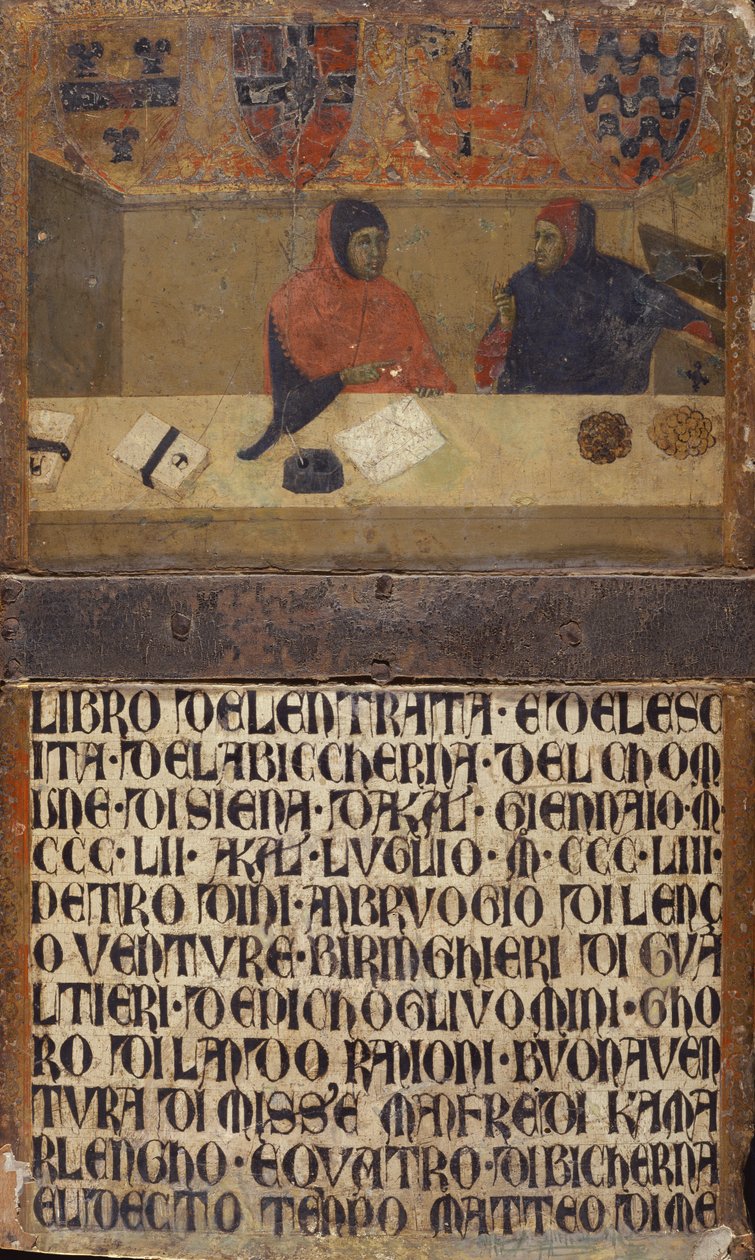 LIBRO DELENTRATA · E DELESC
ITA · DELABICCHERNA · DEL CHOM
UNE · DI SIENA · DAKAL · GIENNAIO · M ·
CCC · LII · AKAL · LUGLIO · M · CCC · LIII ·
PETRO DINI · AMBRUOGIO DI LENÇ
O VENTURE · BIRINGHIERI DI GUA
LTIERI · DEPICHOGLIUOMINI · GHO
RO DI LANDO RANIONI · BUONAVEN
TURA DI MISS'E MANFREDI KAMA
RLENGHO · E QUATRO · DI BICHERNA
EL DECTO TENPO MATTEO DI ME